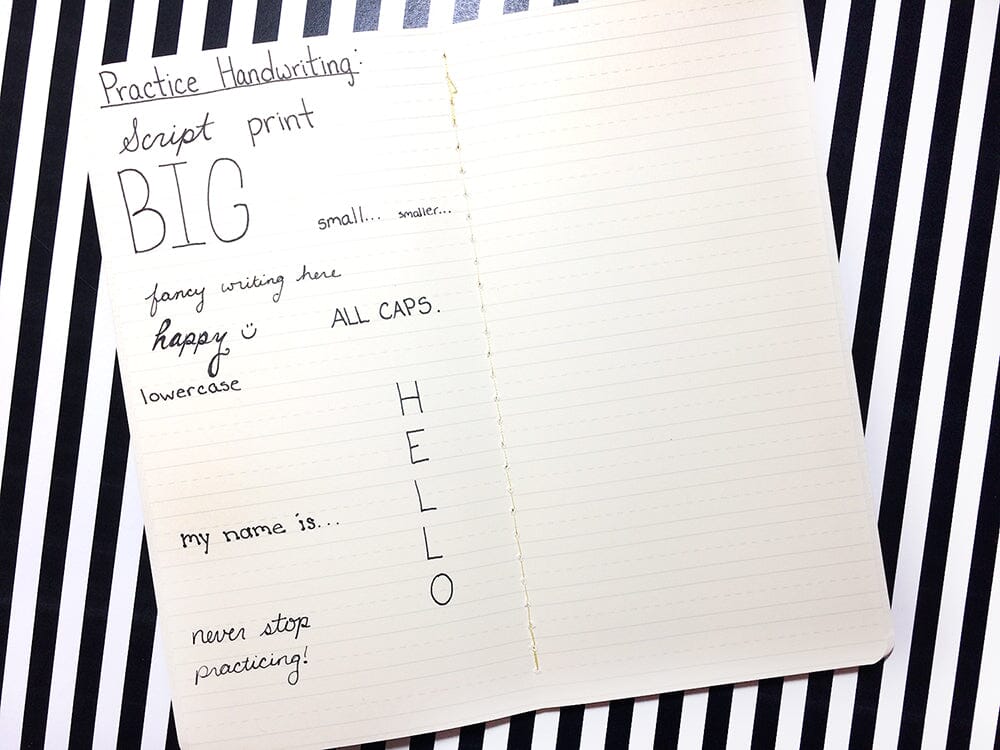 Practice Handwriting:
Script print
BIG
small... smaller...
fancy writing here
ALL CAPS.
happy ☺
lowercase
H
E
L
L
O
my name is...
never stop
practicing!